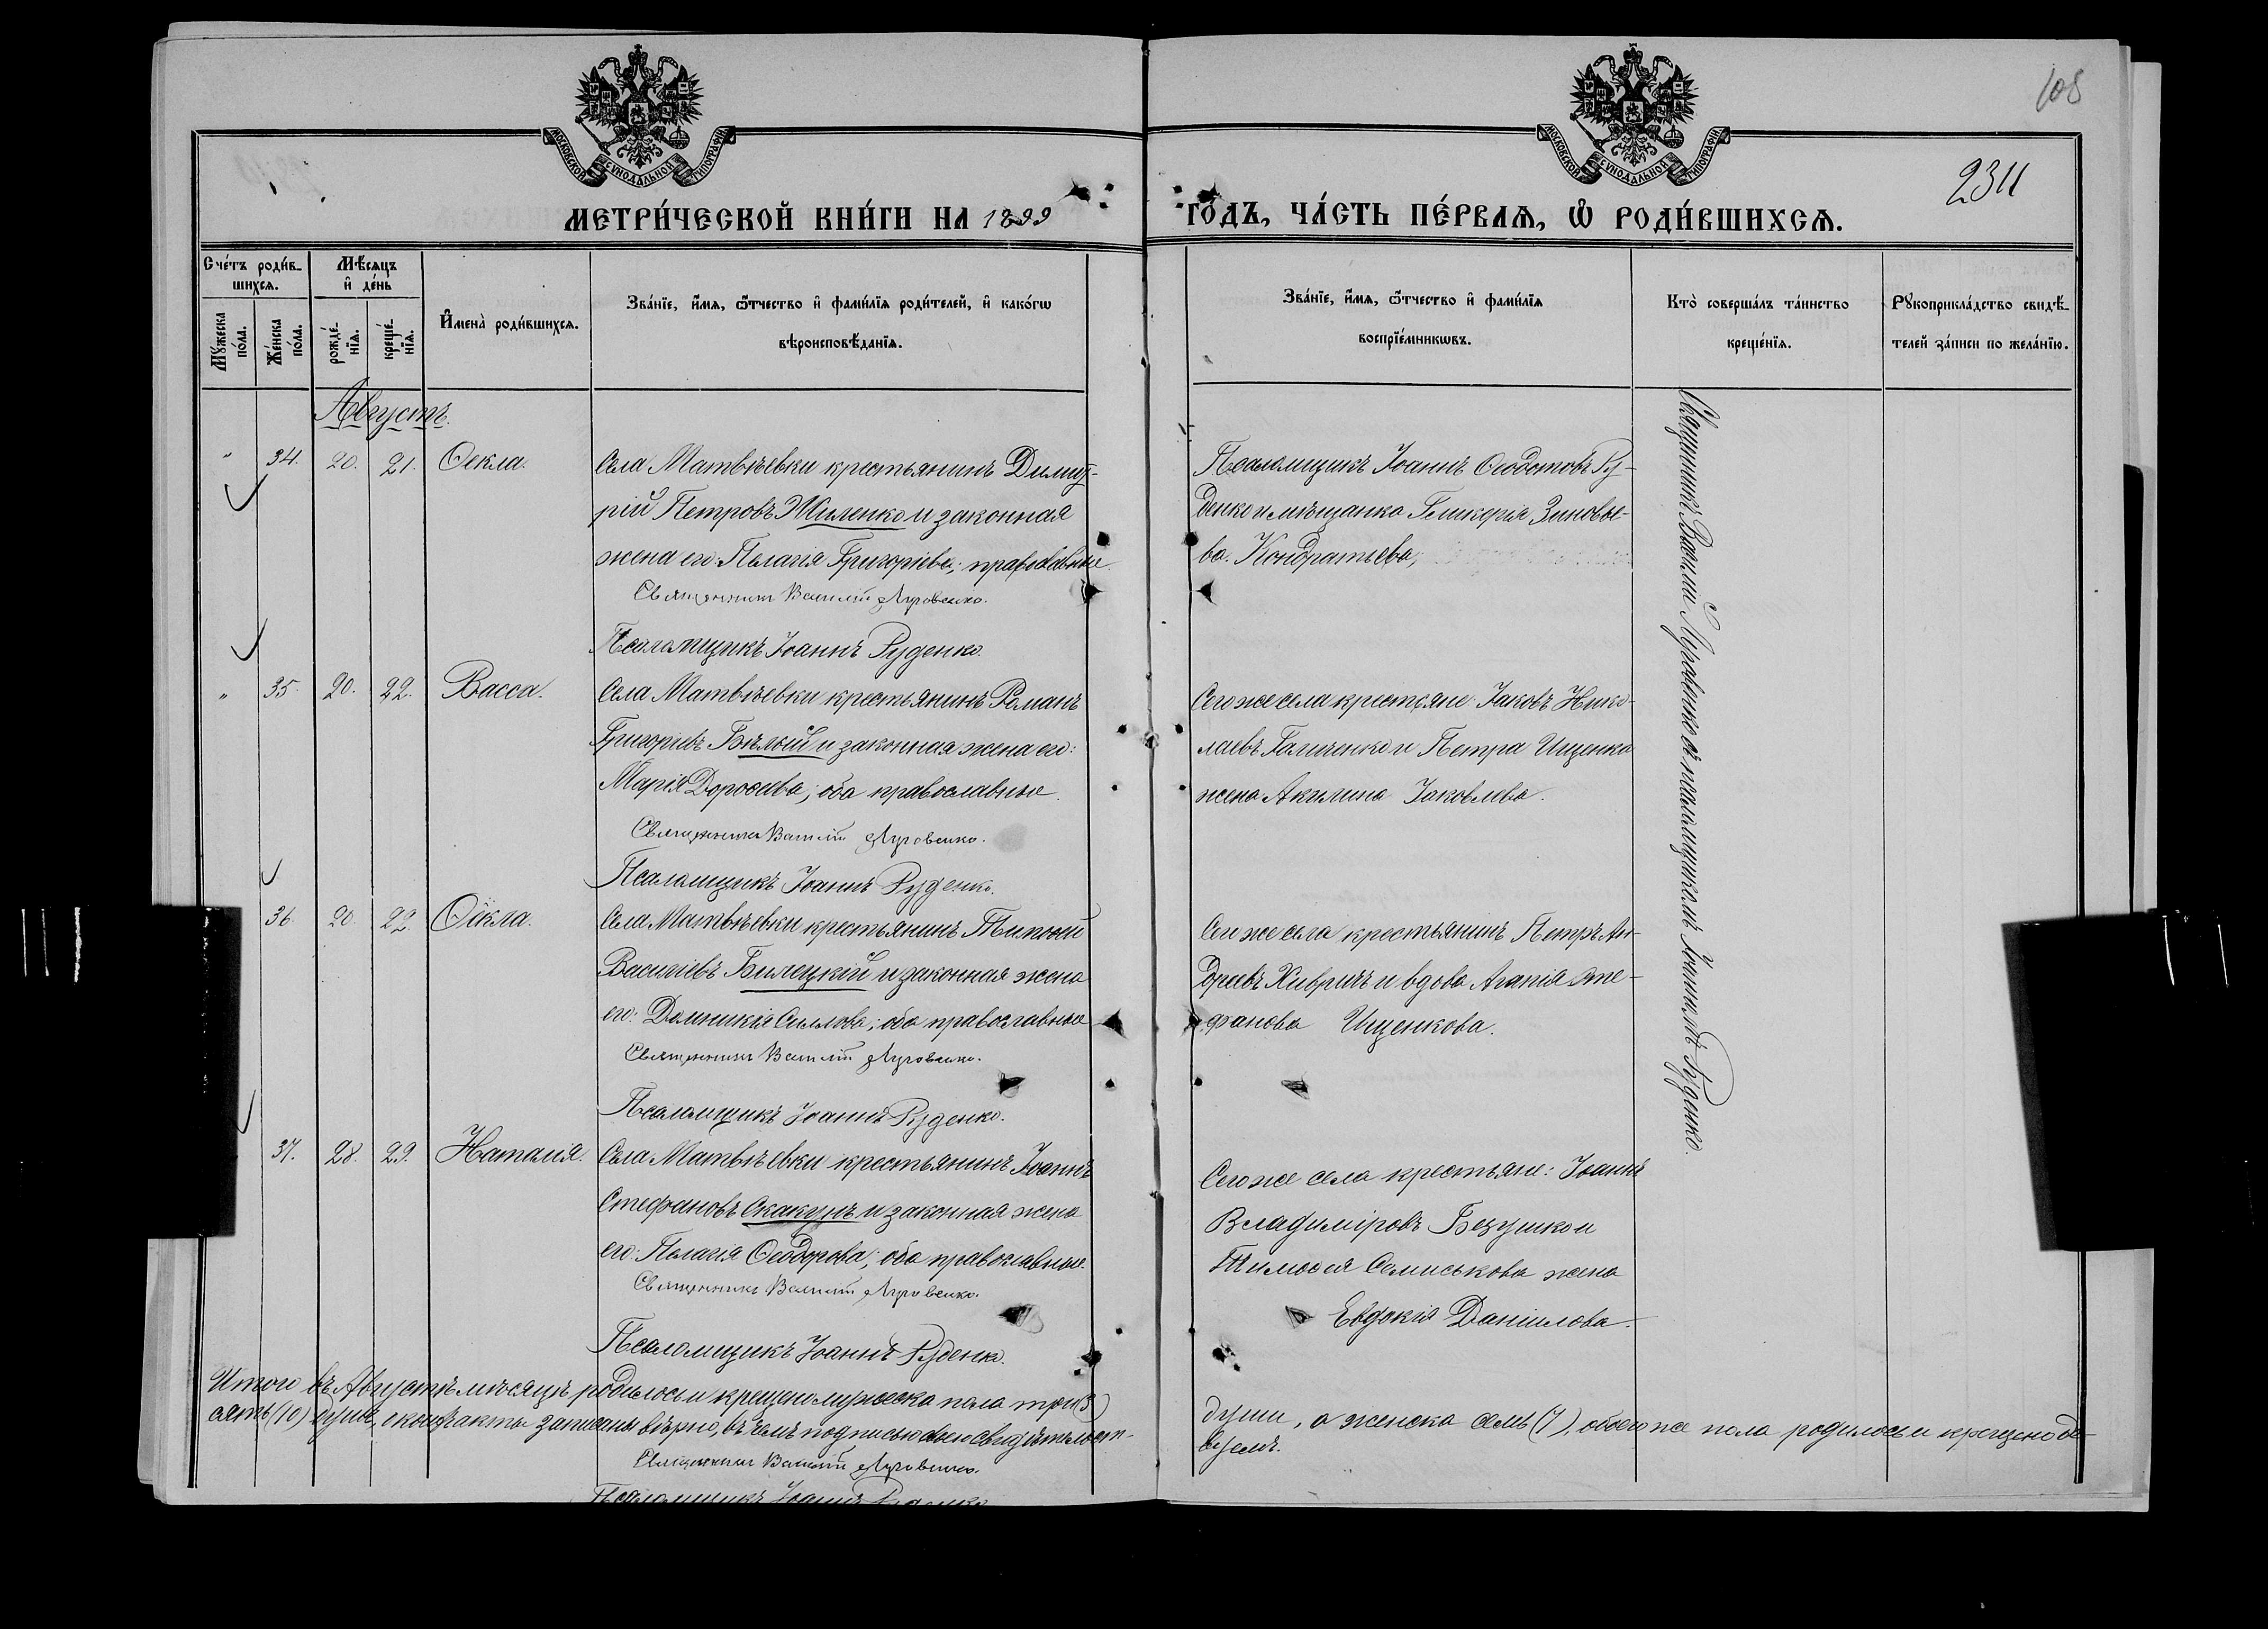 108
2311
МОСКОВСКОЙ СѴНОДАЛЬНОЙ ТИПОГРАФІИ
МОСКОВСКОЙ СѴНОДАЛЬНОЙ ТИПОГРАФІИ
МЕТРИ́ЧЕСКОЙ КНИ́ГИ НА 1899 ГО́ДЪ, ЧА́СТЬ ПЕ́РВАѦ, Ѡ҆ РОДИ́ВШИХСѦ.
Сче́тъ роди́в-
шихсѧ.
Мꙋ́жеска по́ла.
Же́нска по́ла.
Мѣ́сѧцъ
и҆ де́нь
рожде́-нїѧ.
креще́-нїѧ.
И҆мена̀ роди́вшихсѧ.
Зва́нїе, и҆́мѧ, ѻ҆́тчество и҆ фами́лїѧ роди́телей, и҆ како́гѡ
вѣроисповѣ́данїѧ.
Зва́нїе, и҆́мѧ, ѻ҆́тчество и҆ фами́лїѧ
воспрїе́мникѡвъ.
Кто̀ соверша́лъ та́инство
креще́нїѧ.
Рꙋкоприкла́дство свидѣ́-
телей за́писи по жела́нїю.
Августъ.
" 34. 20. 21. Ѳекла.
Села Матвѣевки крестьянинъ Димит-
рій Петровъ Жиленко и законная
жена его: Пелагія Григоріева; православные.
Священникъ Василій Луговенко.
Псаломщикъ Іоаннъ Руденко.
Псаломщикъ Іоаннъ Ѳеодотовъ Ру-
денко и мѣщанка Гликерія Зиновье-
ва Кондратьева;
" 35. 20. 22. Васса.
Села Матвѣевки крестьянинъ Романъ
Григоріевъ Бѣлый и законная жена его:
Марія Дороѳеева; оба православные.
Священникъ Василій Луговенко.
Псаломщикъ Іоаннъ Руденко.
Сего же села крестьяне: Іаковъ Нико-
лаевъ Галиченко и Петра Ищенка
жена Акилина Іаковлева.
36. 20. 22. Ѳекла.
Села Матвѣевки крестьянинъ Тимоѳей
Василіевъ Билецкій и законная жена
его: Домникія Силлова; оба православные
Священникъ Василій Луговенко.
Псаломщикъ Іоаннъ Руденко.
Сего же села крестьянинъ Петръ Ан-
дреевъ Хивричъ и вдова Агапія Сте-
фанова Ищенкова.
37. 28. 29. Наталія.
Села Матвѣевки крестьянинъ Іоаннъ
Стефановъ Скакунъ и законная жена
его: Пелагія Ѳеодорова; оба православные.
Священникъ Василій Луговенко.
Псаломщикъ Іоаннъ Руденко.
Сего же села крестьяне: Іоаннъ
Владиміровъ Безушко и
Тимоѳея Семиськова жена
Евдокія Даніилова.
Священникъ Василій Луговенко съ псаломщикомъ Іоанномъ Руденко.
Итого въ Августѣ мѣсяцѣ родилось и крещено мужеска пола три (3)
души, а женска семь (7), обоего же пола родилось и крещено де-
сять (10) душъ, и кои факты записаны вѣрно, въ чемъ подписью своею свидѣтельст-
вуемъ.
Священникъ Василій Луговенко.
Псаломщикъ Іоаннъ Руденко